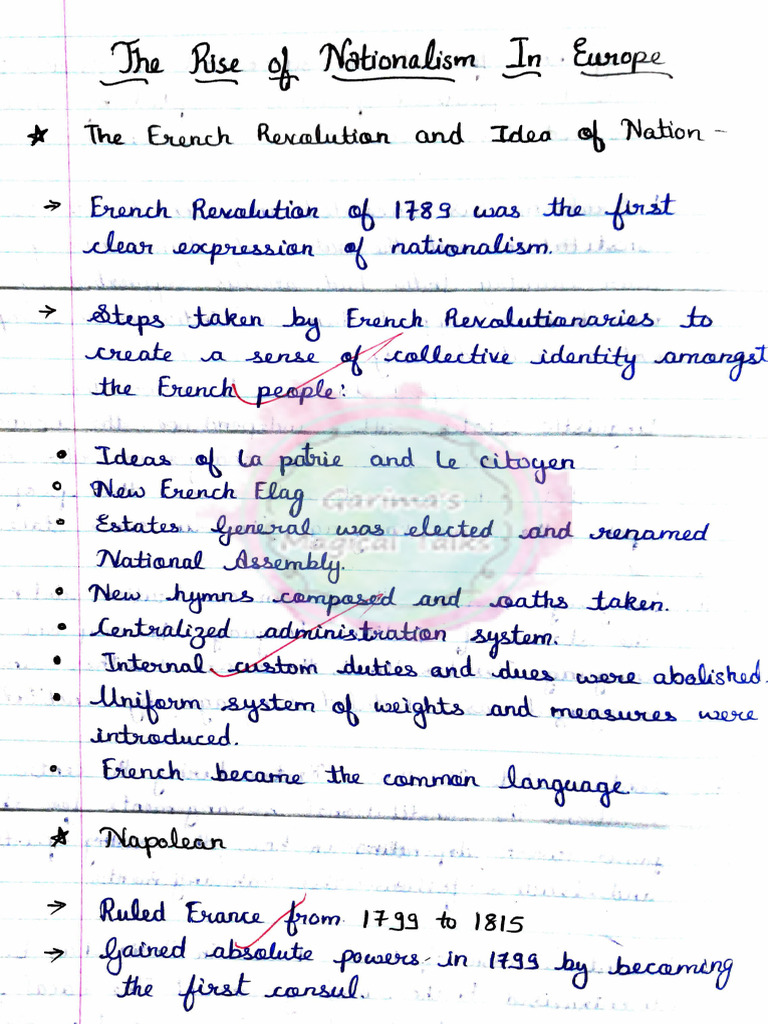 The Rise of Nationalism In Europe
★ The French Revolution and Idea of Nation -
→ French Revolution of 1789 was the first
clear expression of nationalism.
→ Steps taken by French Revolutionaries to
create a sense of collective identity amongst
the French people:
• Ideas of La patrie and le citoyen
• New French Flag
Garima's
• Estates General was elected and renamed
Magical Talks
National Assembly.
• New hymns composed and oaths taken.
• Centralized administration system.
• Internal custom duties and dues were abolished.
• Uniform system of weights and measures were
introduced.
• French became the common language.
★ Napolean
→ Ruled France from 1799 to 1815
→ Gained absolute powers in 1799 by becoming
the first consul.